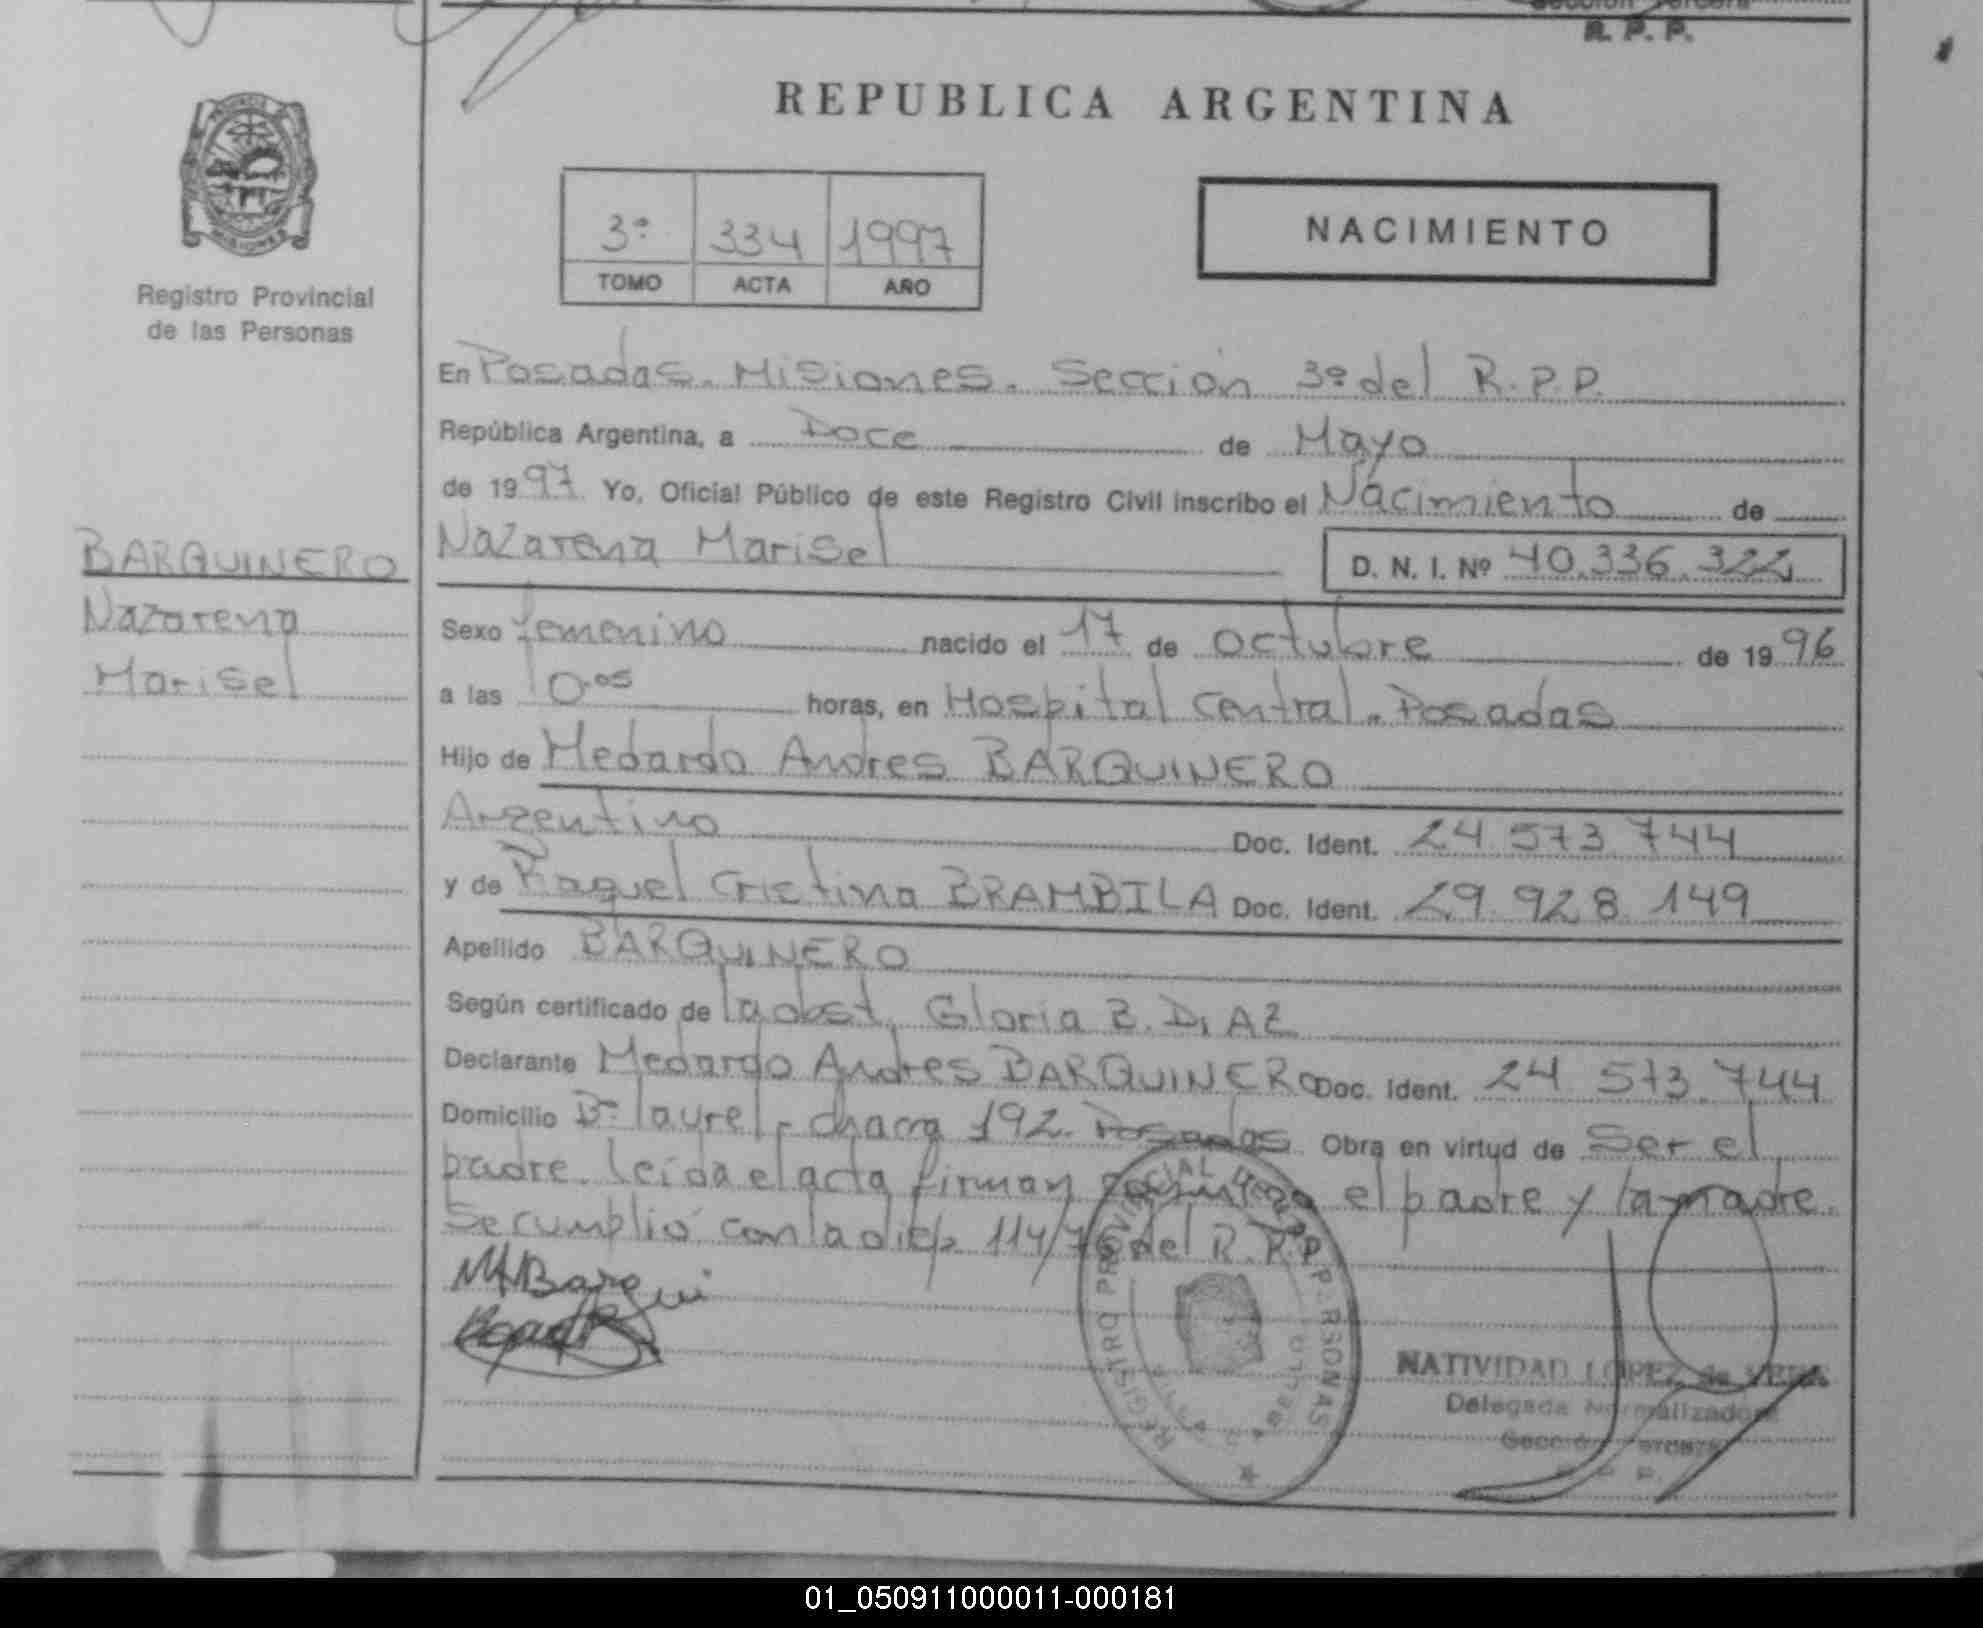 R. P. P.
REPUBLICA ARGENTINA
MISIONES
Registro Provincial
de las Personas
3º 334 1997
TOMO ACTA AÑO
NACIMIENTO
En Posadas. Misiones. Sección 3º del R.P.P.
República Argentina, a Doce de Mayo
de 1997 Yo, Oficial Público de este Registro Civil inscribo el Nacimiento de
BARQUINERO
Nazarena
Marisel
Nazarena Marisel D. N. I. Nº 40.336.322
Sexo femenino nacido el 17 de octubre de 1996
a las 0.05 horas, en Hospital Central. Posadas
Hijo de Medardo Andres BARQUINERO
Argentino Doc. Ident. 24 573 744
y de Raquel Cristina BRAMBILA Doc. Ident. 29 928 149
Apellido BARQUINERO
Según certificado de la obst. Gloria B. DIAZ
Declarante Medardo Andres BARQUINERO Doc. Ident. 24 573 744
Domicilio Bº laurel - chacra 192. Posadas Obra en virtud de Ser el
padre. leida el acta firman el padre y la madre.
Se cumplió con la disp. 114/76 del R.P.P.
REGISTRO PROVINCIAL PERSONAS
NATIVIDAD LOPEZ de
Delegada Normalizadora
Sección
01_050911000011-000181